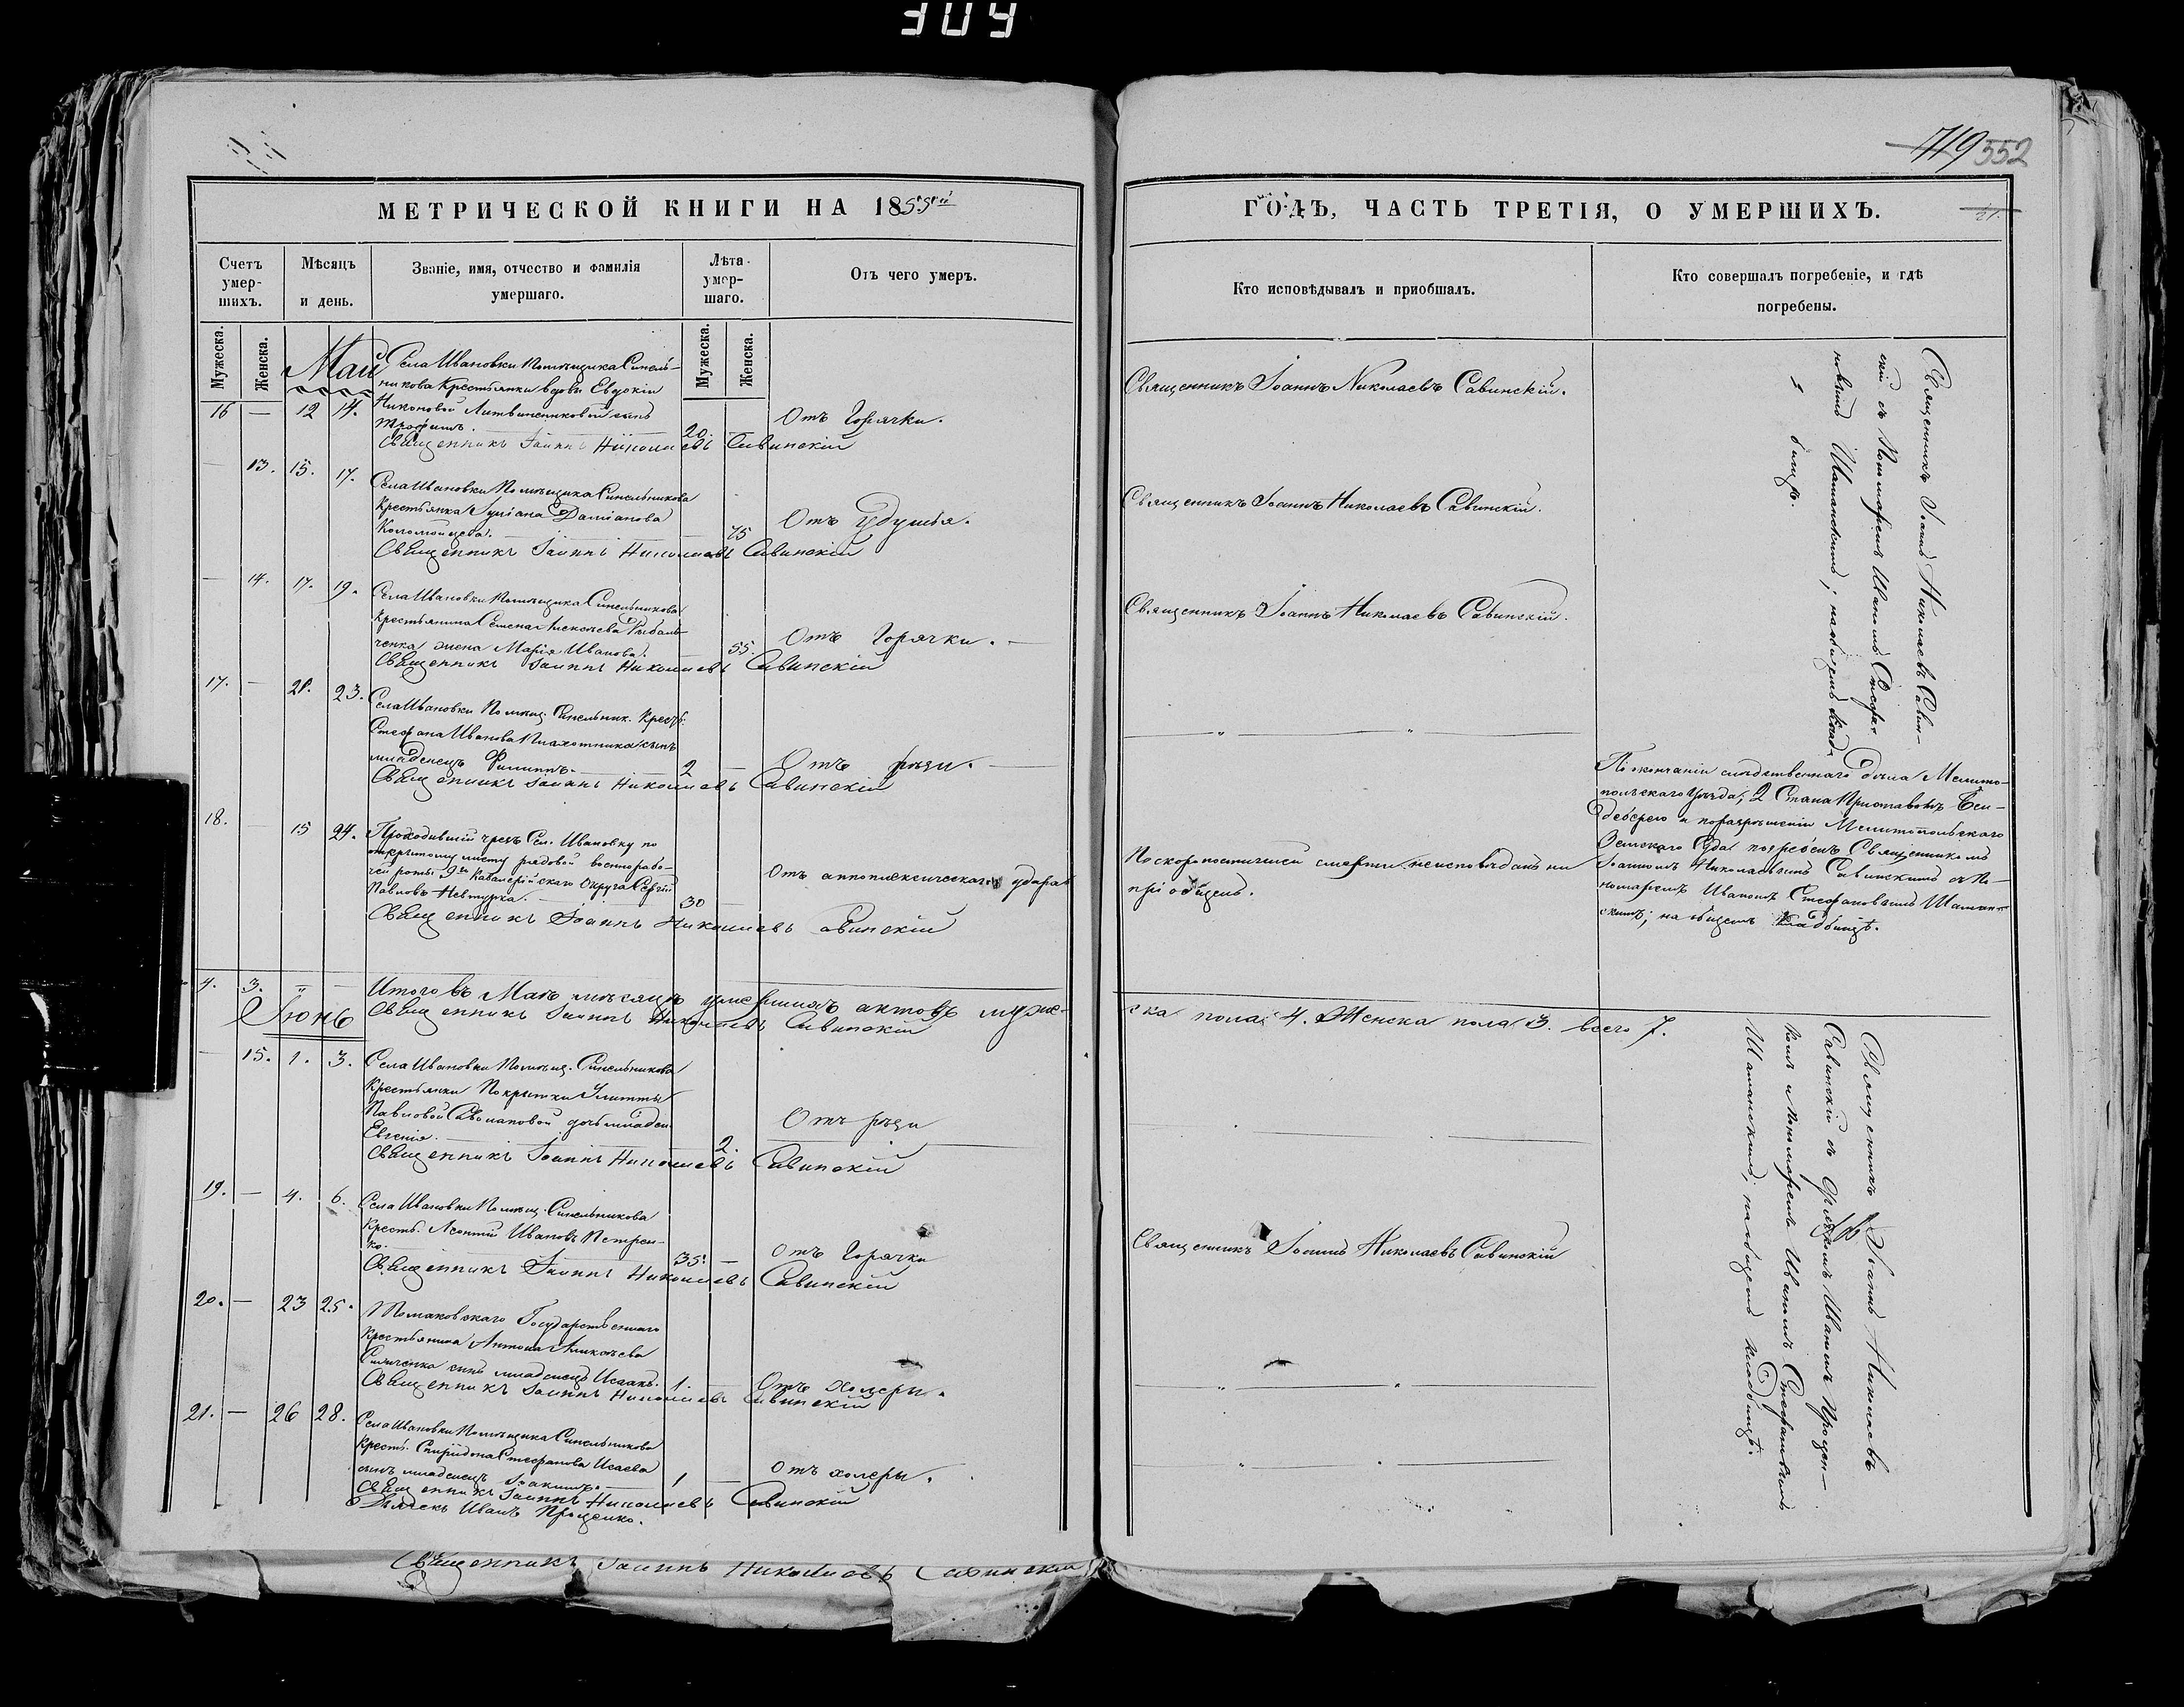 309
719 552
МЕТРИЧЕСКОЙ КНИГИ НА 1855й
ГОДЪ, ЧАСТЬ ТРЕТІЯ, О УМЕРШИХЪ.
Счетъ умер-
шихъ.
Мѣсяцъ
и день.
Званіе, имя, отчество и фамилія
умершаго.
Лѣта
умер-
шаго.
Отъ чего умеръ.
Кто исповѣдывалъ и пріобщалъ.
Кто совершалъ погребеніе, и гдѣ
погребены.
Мужеска.
Женска.
Мужеска.
Женска.
Май
Села Ивановки Помѣщика Синель-
никова Крестьянки вдовы Евдокіи
16 — 12 14. Никоновой Литвиненковой сынъ
Трофимъ. 20. — Отъ Горячки.
Священникъ Іоаннъ Николаевъ Савинскій.
Священникъ Іоаннъ Николаевъ Савинскій
— 13. 15. 17. Села Ивановки Помѣщика Синельникова
Крестьянка Іуліана Даміанова
Коломойцева. 75 Отъ Удушья.
Священникъ Іоаннъ Николаевъ Савинскій.
Священникъ Іоаннъ Николаевъ Савинскій
— 14. 17. 19. Села Ивановки Помѣщика Синельникова
Крестьянина Семена Алексѣева Рыбаль-
ченка жена Марія Иванова. 55. Отъ Горячки.
Священникъ Іоаннъ Николаевъ Савинскій.
Священникъ Іоаннъ Николаевъ Савинскій
17. — 21. 23. Села Ивановки Помѣщ. Синельник. Крест.
Стефана Иванова Плахотника сынъ
младенецъ Филиппъ. 2 — Отъ рѣзи.
Священникъ Іоаннъ Николаевъ Савинскій
Священникъ Іоаннъ Николаевъ Савин-
скій съ Пономаремъ Иваномъ Стефа-
новымъ Шаманскимъ; на общемъ клад-
бищѣ.
18. — 15 24. Проходившій чрезъ Сел. Ивановку по
открытому листу рядовой военнорабо-
чей роты 9го Кавалерійскаго Округа Сергій
Павловъ Невтурка. 30 — Отъ апоплексическаго удара
Священникъ Іоаннъ Николаевъ Савинскій
По скоропостижной смерти неисповѣданъ ни
пріобщенъ.
По окончаніи слѣдственнаго дѣла Мелито-
польскаго Уѣзда, 2 Стана Приставомъ
и по разрѣшеніи Мелитопольскаго
Земскаго Суда погребенъ Священникомъ
Іоанномъ Николаевымъ Савинскимъ съ По-
номаремъ Иваномъ Стефановымъ Шаман-
скимъ; на общемъ Кладбищѣ.
4. 3. „ — Итого въ Маѣ мѣсяцѣ умершихъ актовъ муже-
ска пола 4. Женска пола 3. всего 7.
Священникъ Іоаннъ Николаевъ Савинскій
Іюнь
— 15. 1. 3. Села Ивановки Помѣщ. Синельникова
Крестьянки Покрытки Улитты
Павловой дочь младен.
Евгенія. 2. Отъ рѣзи
Священникъ Іоаннъ Николаевъ Савинскій
19. — 4. 6. Села Ивановки Помѣщ. Синельникова
Крест. Леонтій Ивановъ Петрен-
ко. 35. — Отъ Горячки
Священникъ Іоаннъ Николаевъ Савинскій
Священникъ Іоаннъ Николаевъ Савинскій
20. — 23 25. Государственнаго
Крестьянина Антона Алексѣева
сынъ младенецъ Исаакъ. 1. — Отъ холеры.
Священникъ Іоаннъ Николаевъ Савинскій
21. — 26 28. Села Ивановки Помѣщика Синельникова
Крест. Спиридона Стефанова Исаева
сынъ младенецъ Іоакимъ. 1 — Отъ холеры.
Священникъ Іоаннъ Николаевъ Савинскій
Дьячекъ Иванъ Проценко.
Священникъ Іоаннъ Николаевъ
Савинскій съ Дьячкомъ Иваномъ Процен-
комъ и Пономаремъ Иваномъ Стефановымъ
Шаманскимъ; на общемъ кладбищѣ.
Священникъ Іоаннъ Николаевъ Савинскій